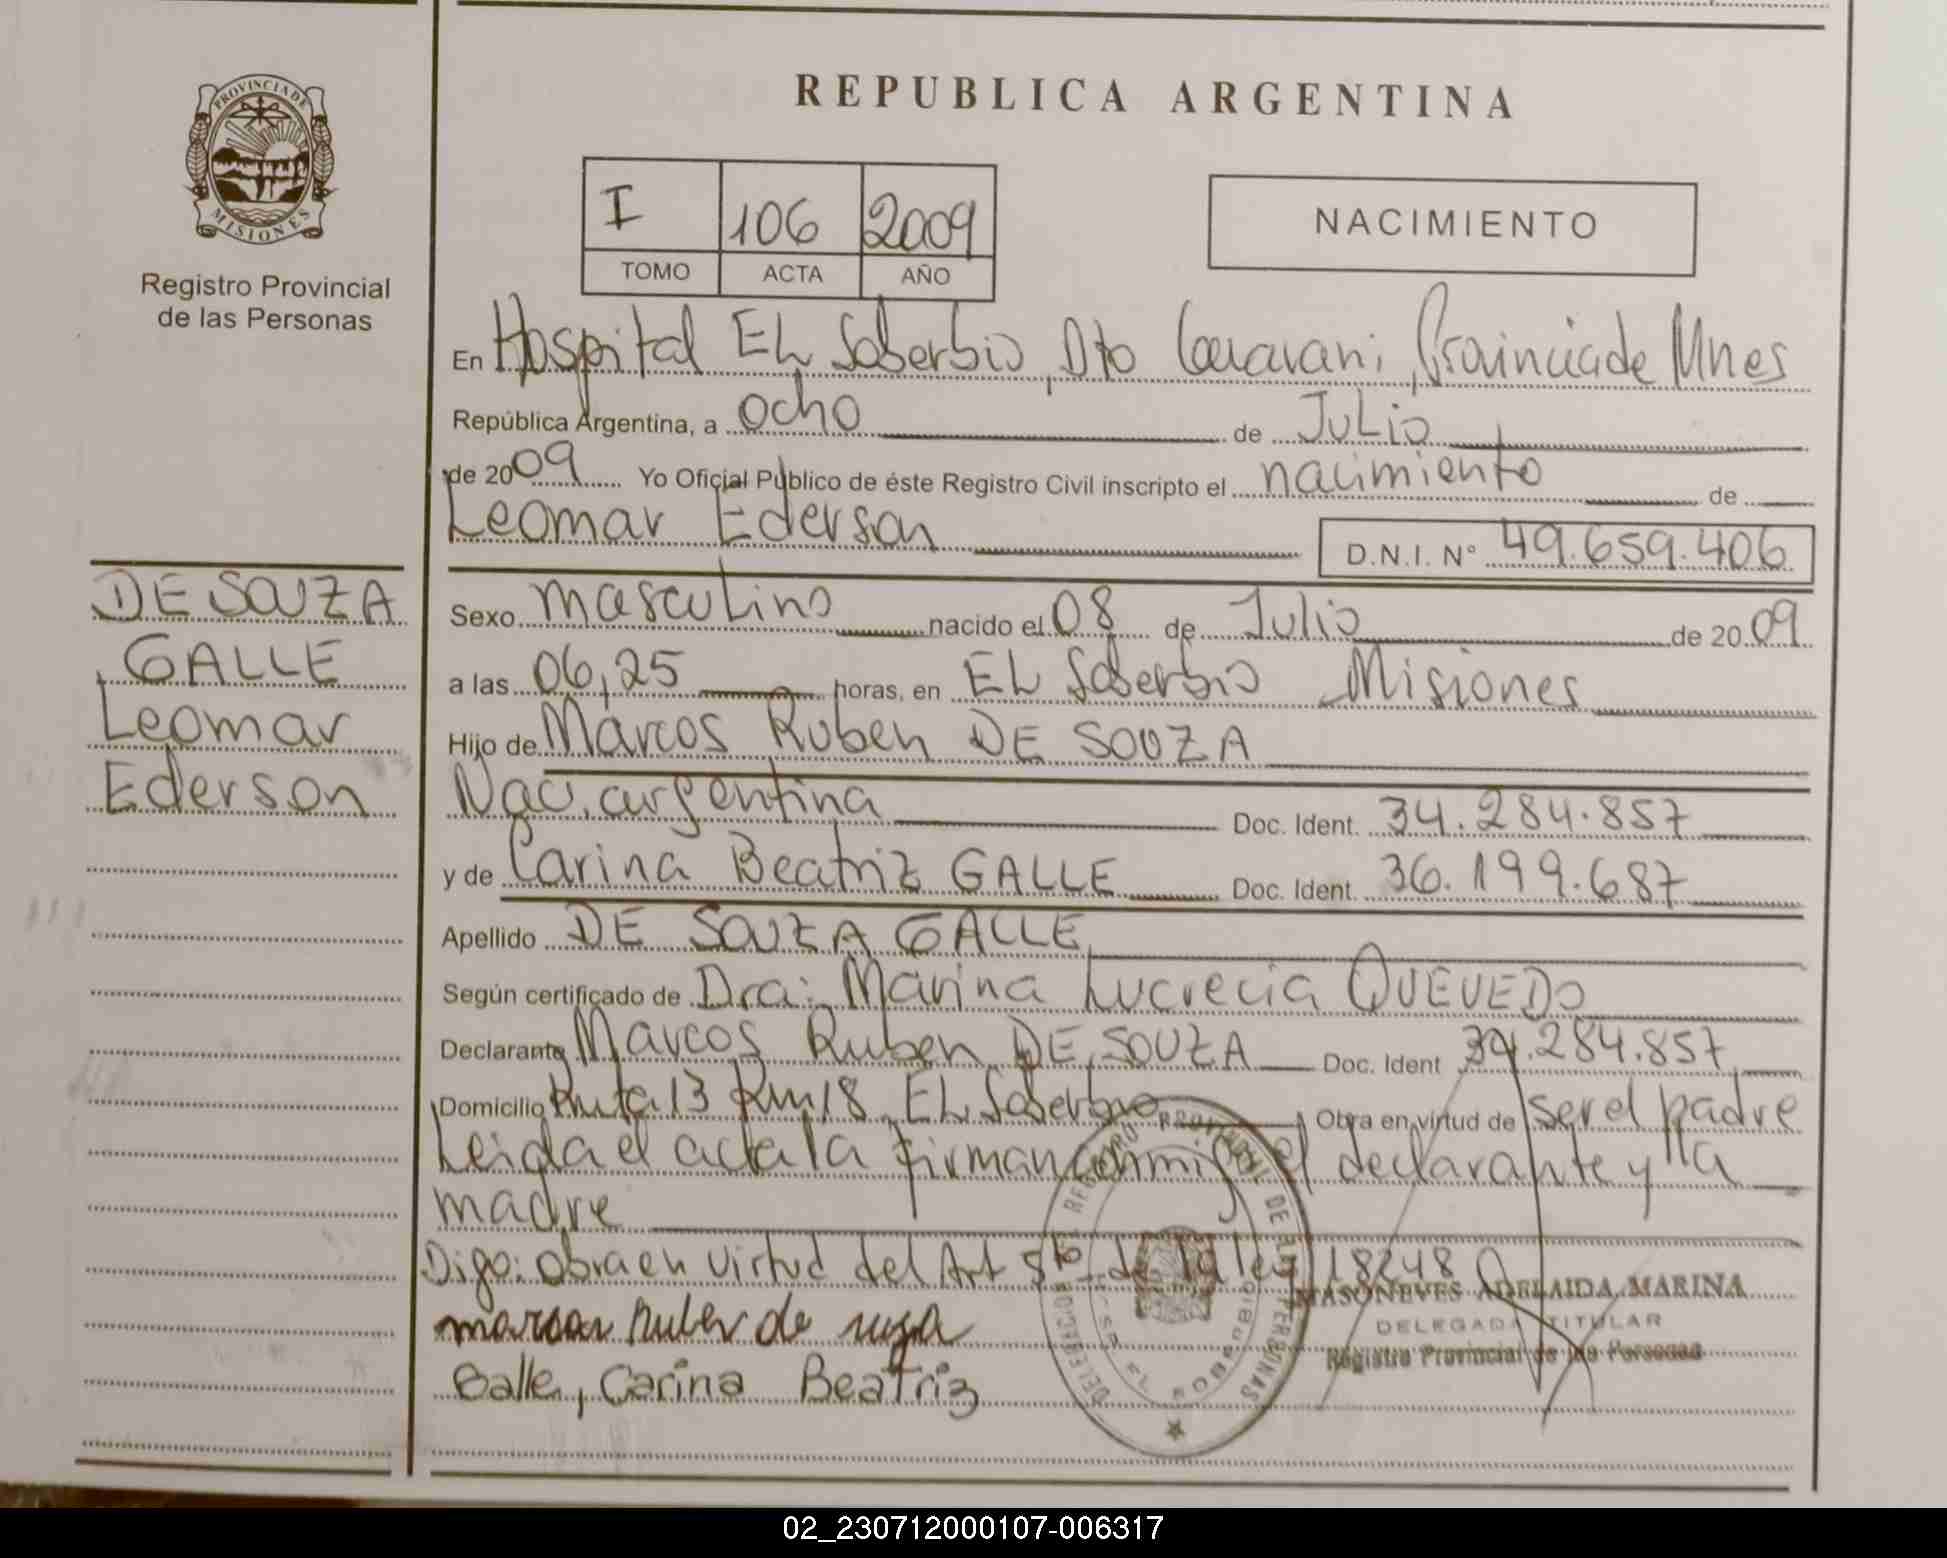 PROVINCIA DE
MISIONES
Registro Provincial
de las Personas
DE SOUZA
GALLE
Leomar
Ederson
REPUBLICA ARGENTINA
I 106 2009
TOMO ACTA AÑO
NACIMIENTO
En Hospital EL Soberbio, Dto Guarani, Provincia de Mnes
República Argentina, a ocho de Julio
de 2009 Yo Oficial Público de éste Registro Civil inscripto el nacimiento de
Leomar Ederson D.N.I. Nº 49.659.406
Sexo masculino nacido el 08 de Julio de 2009
a las 06,25 horas, en EL Soberbio Misiones
Hijo de Marcos Ruben DE SOUZA
Nac. argentina Doc. Ident. 34.284.857
y de Carina Beatriz GALLE Doc. Ident. 36.199.687
Apellido DE SOUZA GALLE
Según certificado de Dra: Marina Lucrecia QUEVEDO
Declarante Marcos Ruben DE SOUZA Doc. Ident 34.284.857
Domicilio Ruta 13 Km 18 EL Soberbio Obra en virtud de ser el padre
Leida el acta la firman conmigo el declarante y la
madre
Digo: obra en virtud del Art 5to de la ley 18248
MASONEVES ADELAIDA MARINA
DELEGADA TITULAR
Registro Provincial de las Personas
marcos Ruben de
Galle, Carina Beatriz
REGISTRO PROVINCIAL DE LAS PERSONAS
02_230712000107-006317